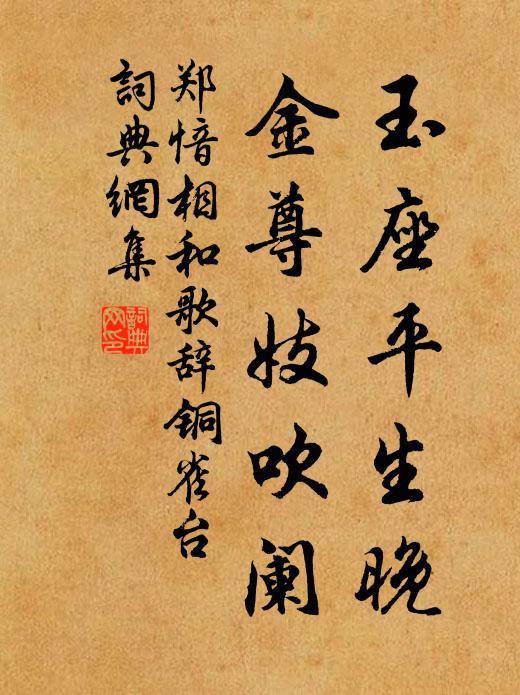 玉座平生晚
金尊妓吹阑
郑愔相和歌辞铜雀台
詞典網集
詞典网印